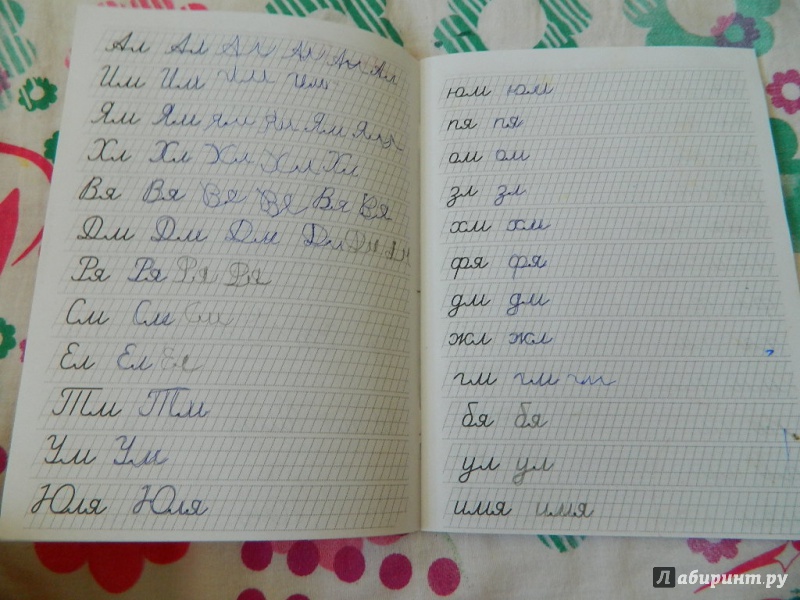 Ал Ал Ал Ал Ал Ал
Им Им Им Им
Ям Ям Ям Ям Ям Ям
Хл Хл Хл Хл Хл
Вя Вя Вя Вя Вя Вя
Дм Дм Дм Дм Дм Дм
Ря Ря Ря Ря
См См См
Ел Ел Ел
Тм Тм
Ум Ум
Юля Юля
юм юм
пя пя
ом ом
зл зл
хм хм
фя фя
дм дм
жл жл
гм гм гм
бя бя
ул ул
имя имя
Лабиринт.ру